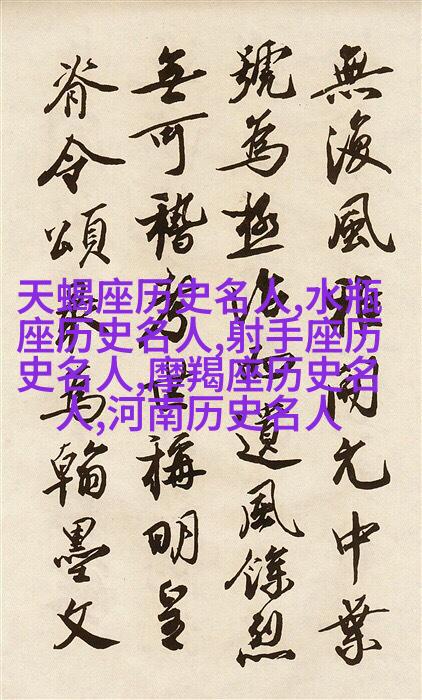 無復風雅開元中葉
號為極治而遺風餘烈
無可稽考世稱明皇
脊令頌最為翰墨文
天蝎座历史名人,水瓶
座历史名人,射手座历
史名人,摩羯座历史名
人,河南历史名人